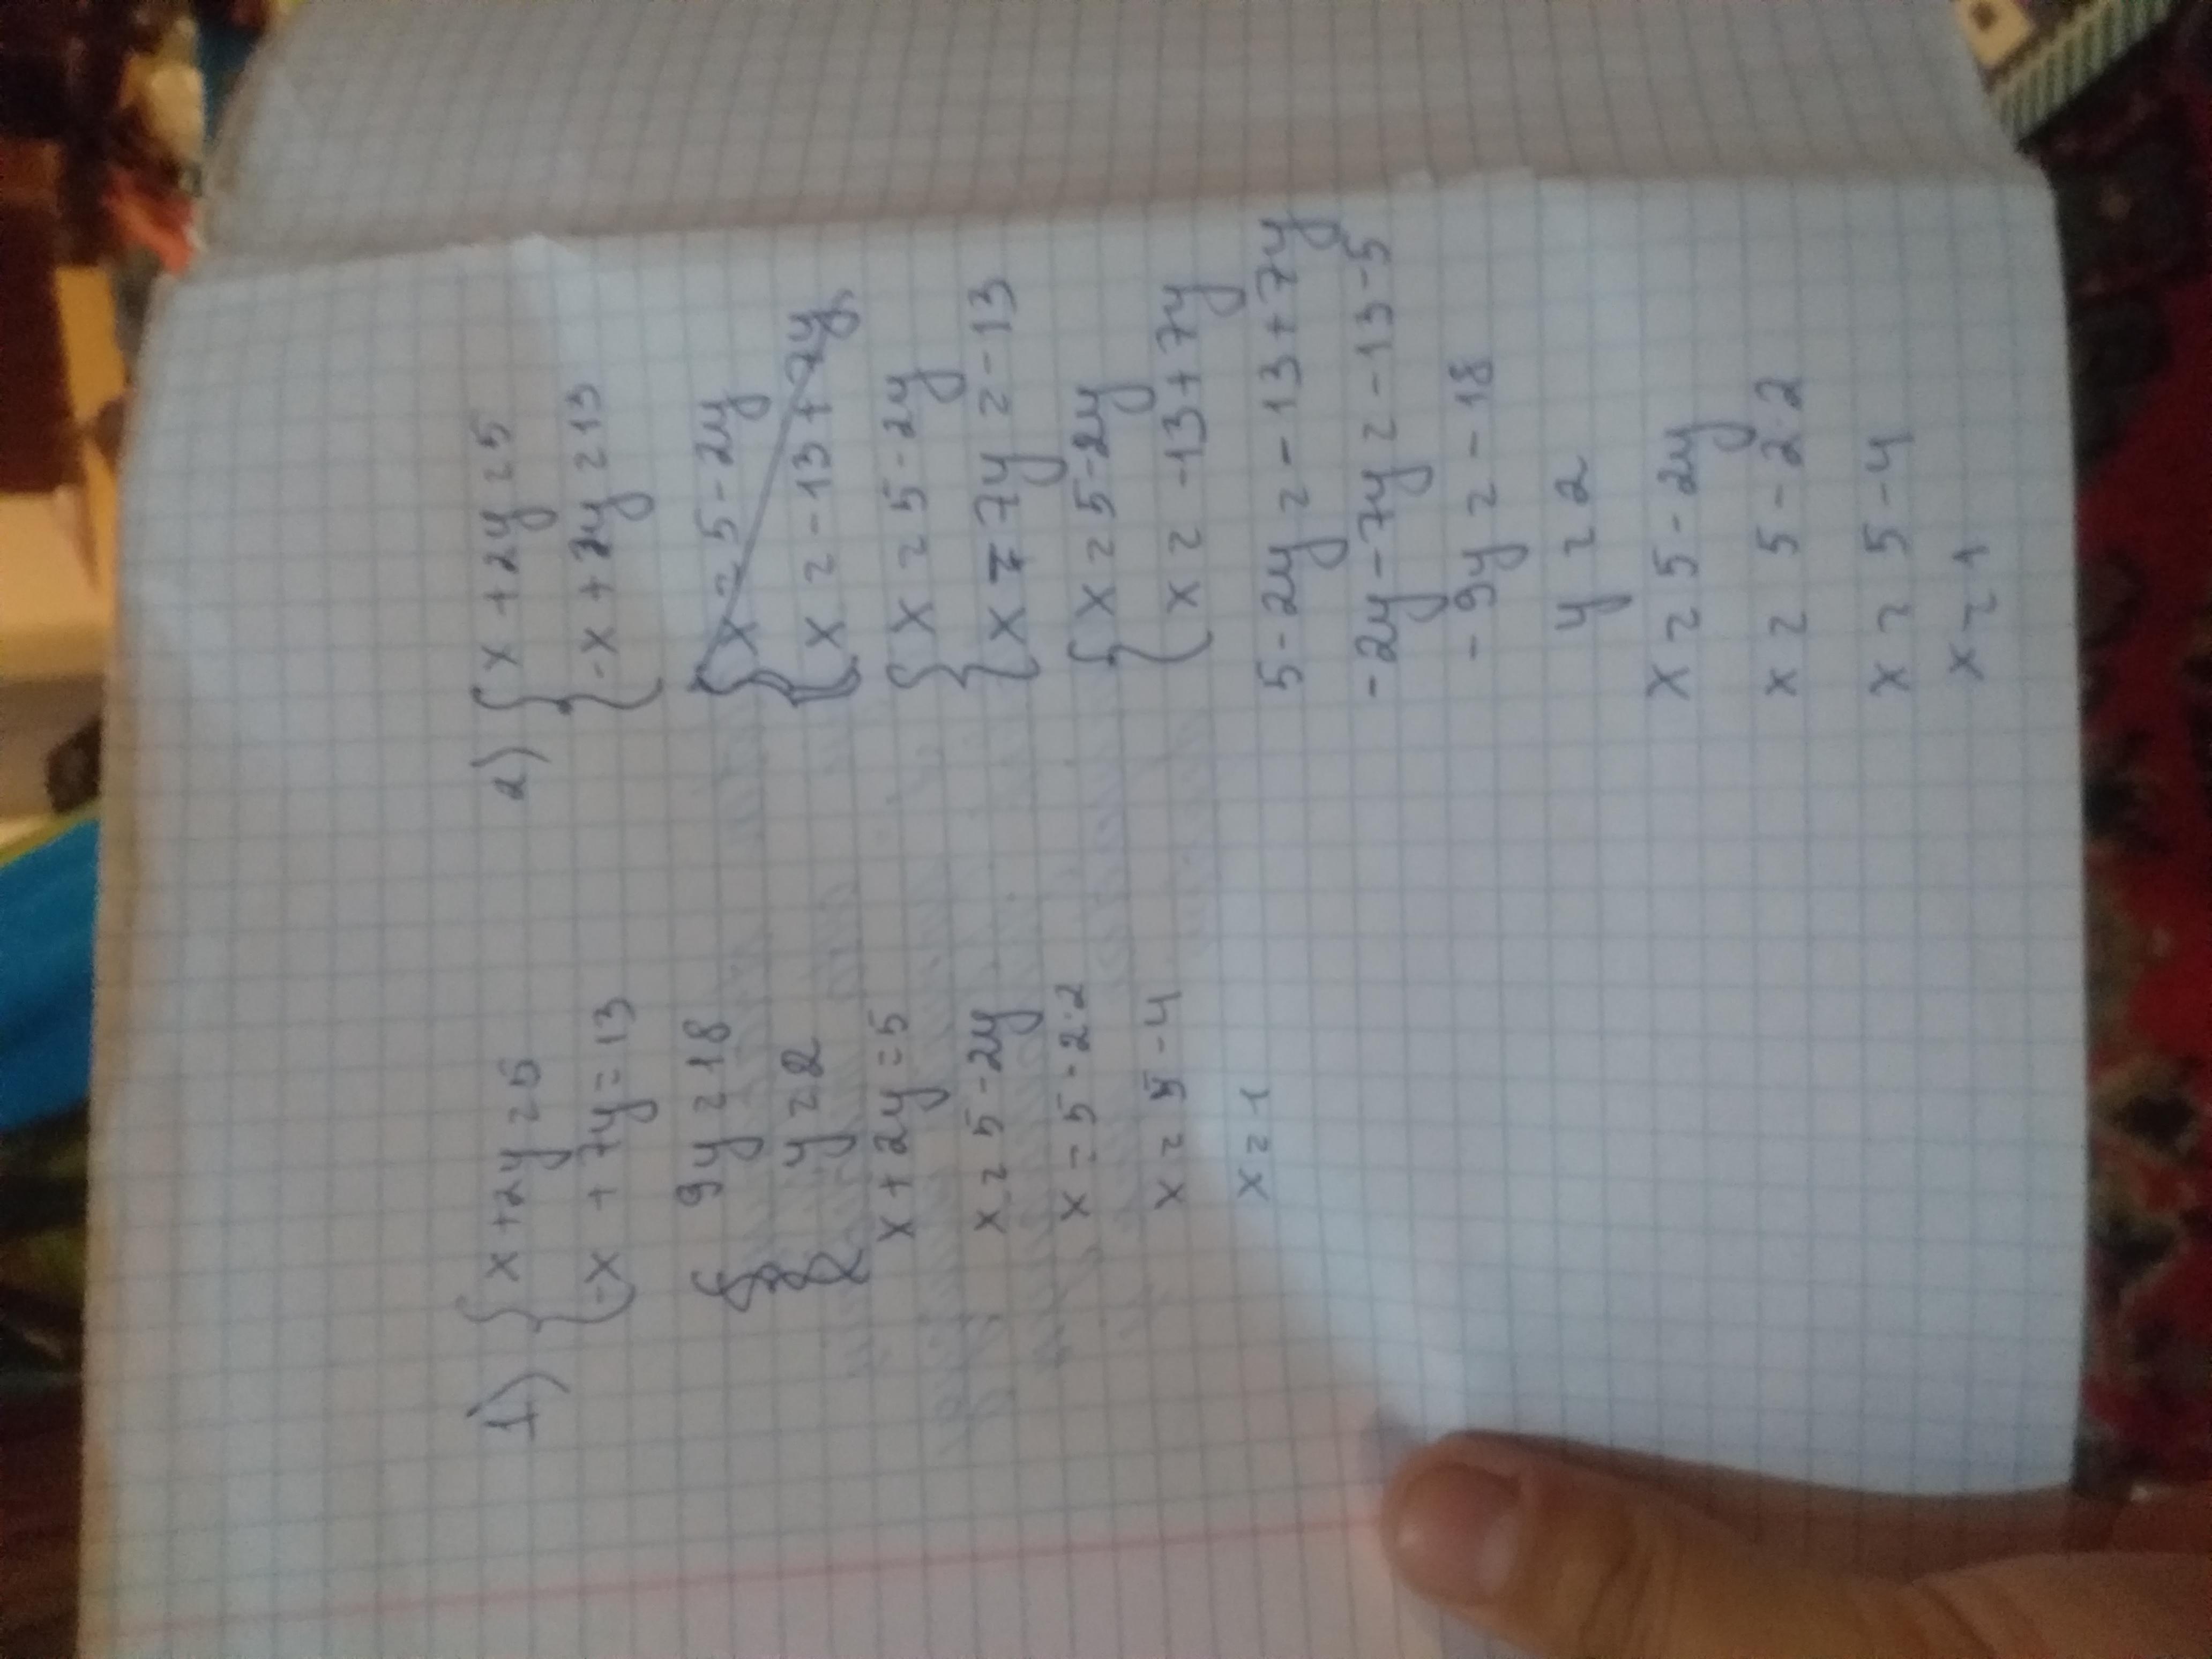 1) { x + 2y = 5
-x + 7y = 13
9y = 18
y = 2
x + 2y = 5
x = 5 - 2y
x = 5 - 2·2
x = 5 - 4
x = 1
2) { x + 2y = 5
-x + 7y = 13
{ x = 5 - 2y
x = -13 + 7y
{ x = 5 - 2y
x - 7y = -13
{ x = 5 - 2y
x = -13 + 7y
5 - 2y = -13 + 7y
-2y - 7y = -13 - 5
-9y = -18
y = 2
x = 5 - 2y
x = 5 - 2·2
x = 5 - 4
x = 1